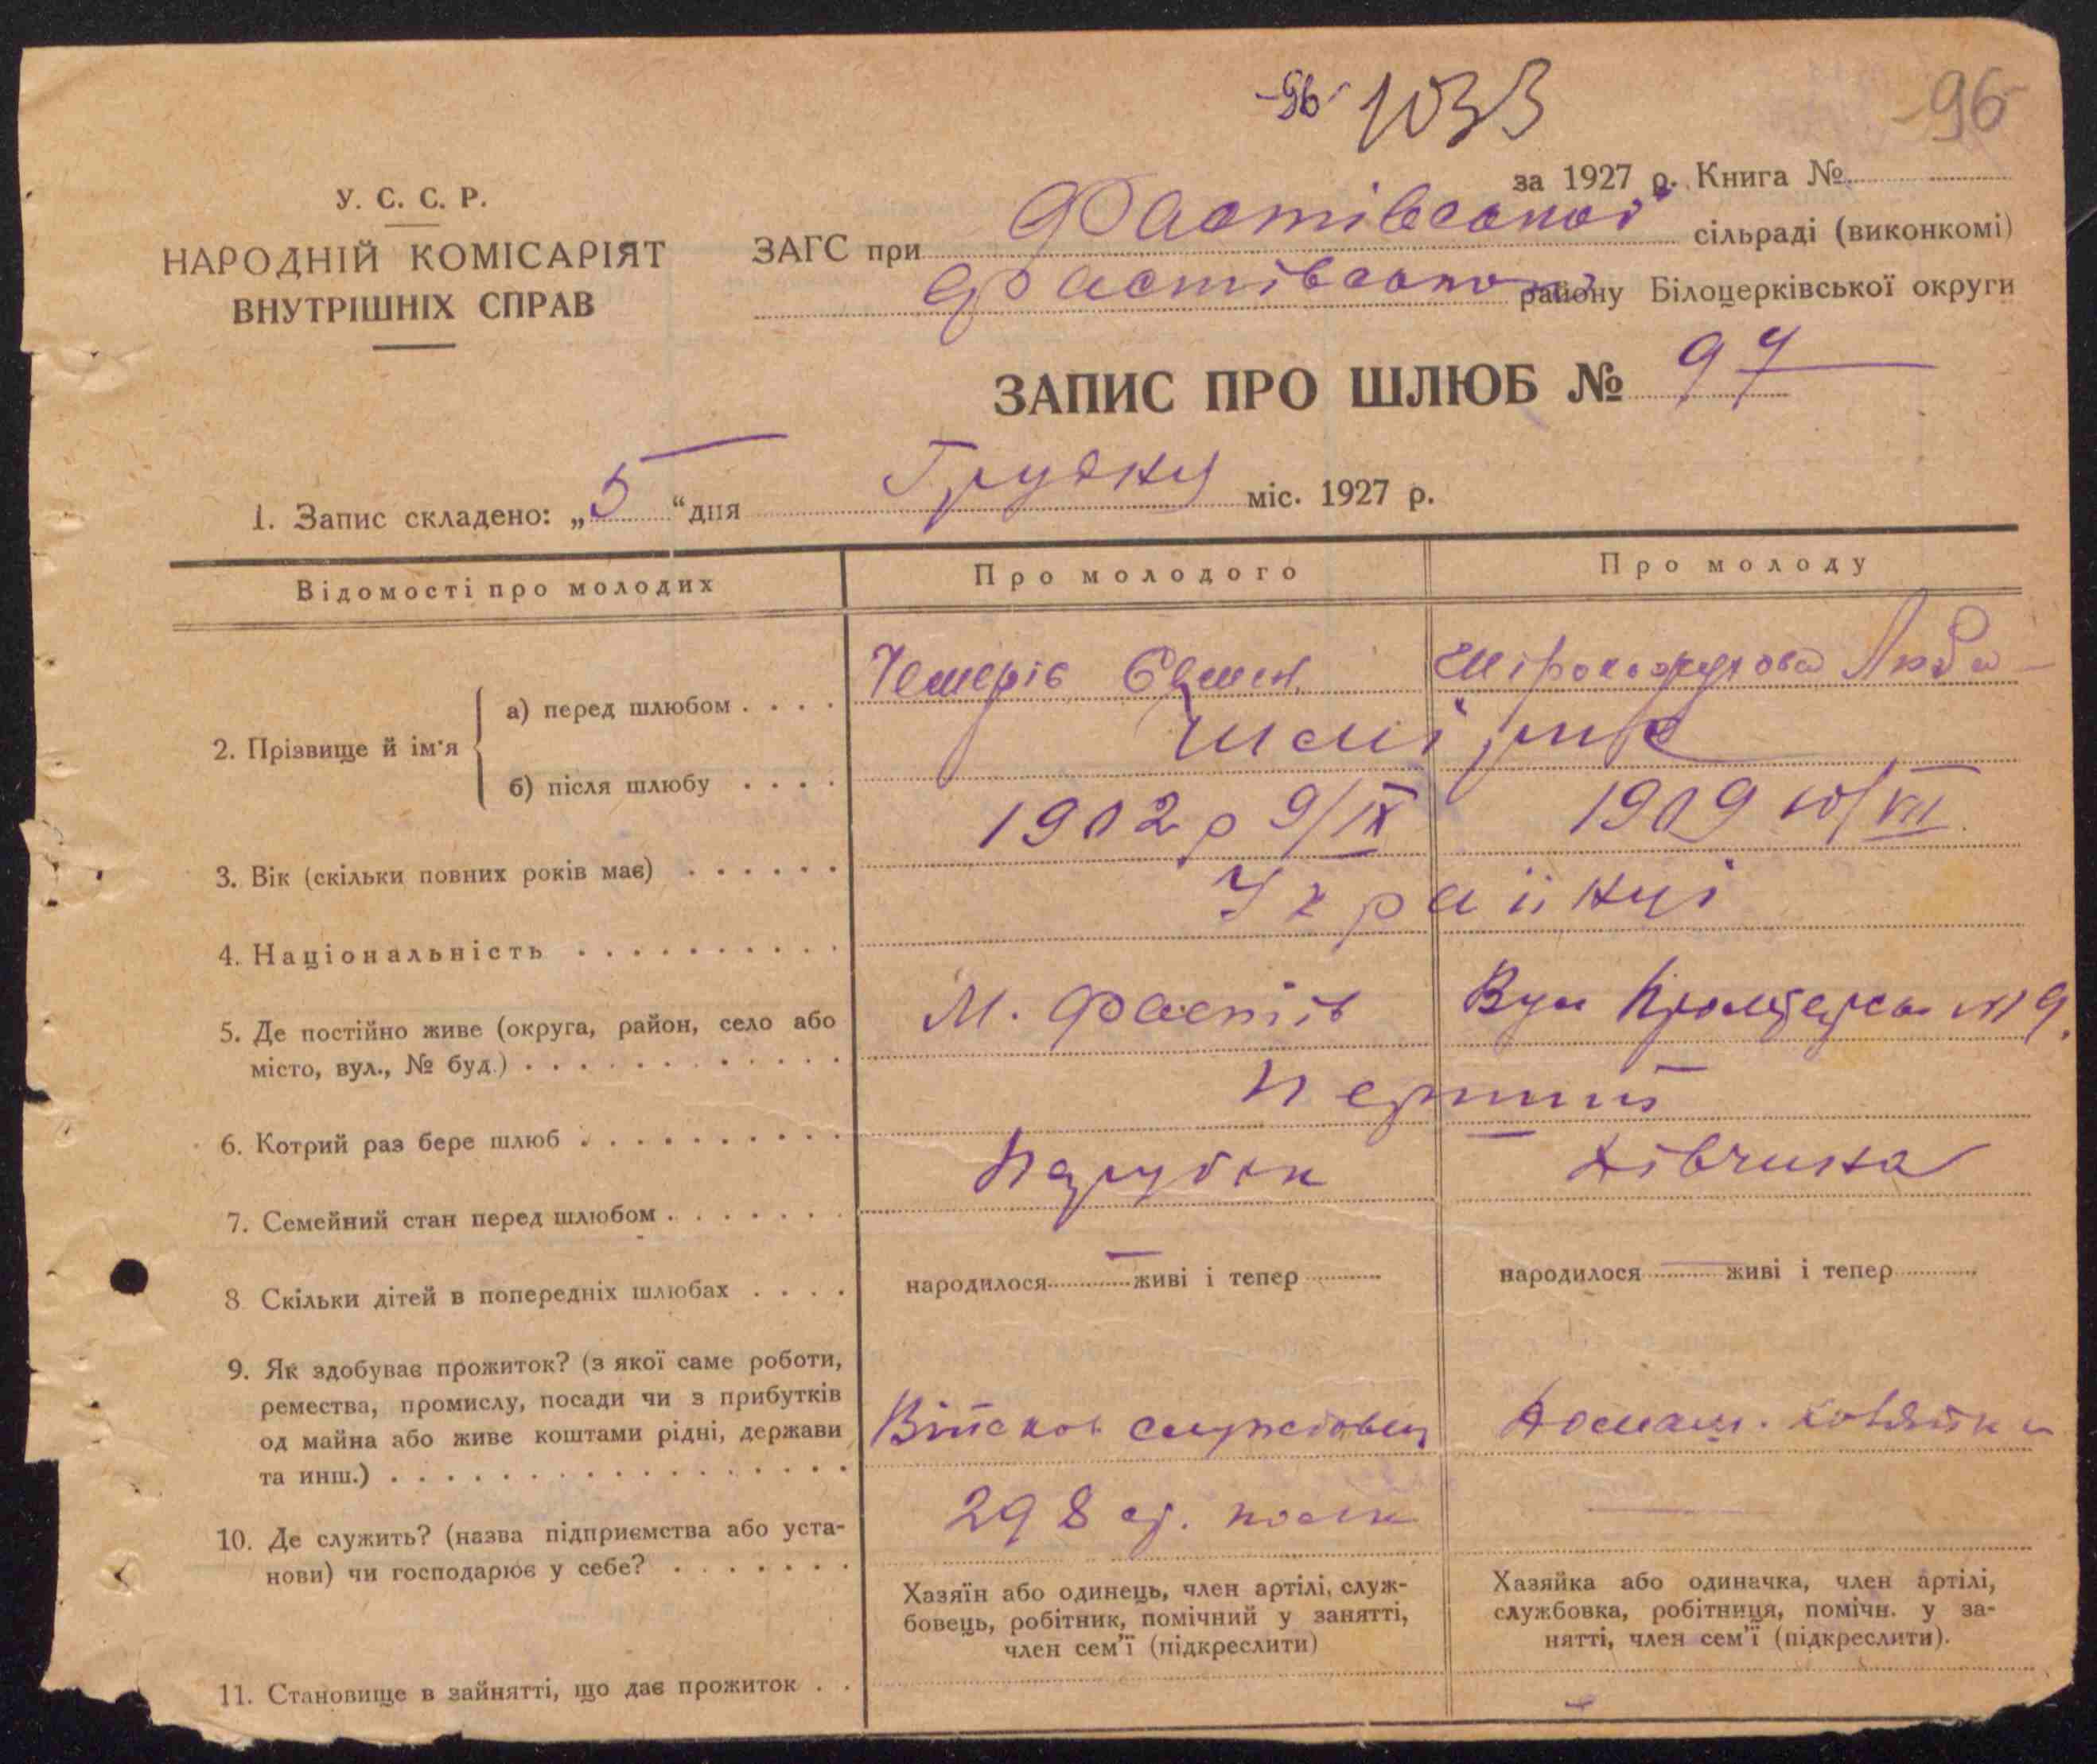 -96- 1033 -96-
за 1927 р. Книга №
У. С. С. Р.
НАРОДНІЙ КОМІСАРІЯТ
ВНУТРІШНІХ СПРАВ
ЗАГС при Фастівської сільраді (виконкомі)
Фастівського району Білоцерківської округи
ЗАПИС ПРО ШЛЮБ № 97
1. Запис складено: „5“ дня Грудня міс. 1927 р.
Відомості про молодих
Про молодого
Про молоду
2. Прізвище й ім'я
а) перед шлюбом . . . .
Люба
б) після шлюбу . . . .
3. Вік (скільки повних років має) . . . . . .
1902 р 9/IX
1909 10/VII
4. Національність . . . . . . . . . .
Українці
5. Де постійно живе (округа, район, село або
місто, вул., № буд.) . . . . . . . . . . . .
М. Фастів
Вул №19.
6. Котрий раз бере шлюб . . . . . . . . . .
Перший
7. Семейний стан перед шлюбом . . . . . . .
Парубок
Дівчина
8 Скільки дітей в попередніх шлюбах . . . .
народилося — живі і тепер
народилося — живі і тепер
9. Як здобуває прожиток? (з якої саме роботи,
ремества, промислу, посади чи з прибутків
од майна або живе коштами рідні, держави
та инш.) . . . . . . . . . . . . . . . . .
Військов службовец
Домаш. хозяйка
10. Де служить? (назва підприємства або уста-
нови) чи господарює у себе? . . . . . . .
298 полк
Хазяїн або одинець, член артілі, служ-
бовець, робітник, помічний у занятті,
член сем'ї (підкреслити)
Хазяйка або одиначка, член артілі,
службовка, робітниця, помічн. у за-
нятті, член сем'ї (підкреслити).
11. Становище в зайнятті, що дає прожиток . .